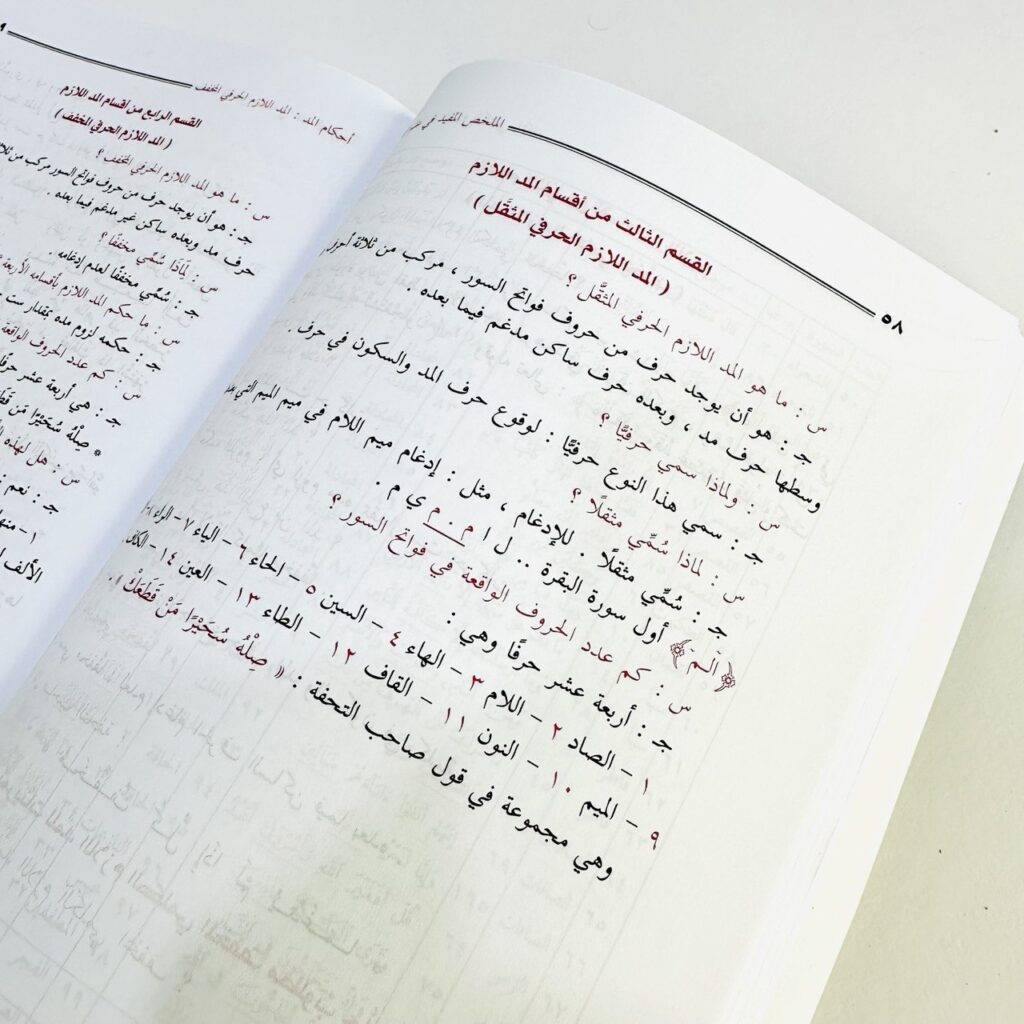 الملخص المفيد في
٥٨
القسم الثالث من أقسام المد اللازم
( المد اللازم الحرفي المثقَّل )
س : ما هو المد اللازم الحرفي المثقَّل ؟
جـ : هو أن يوجد حرف من حروف فواتح السور ، مركب من ثلاثة أحرف
وسطها حرف مد ، وبعده حرف ساكن مدغم فيما بعده .
س : ولماذا سمي حرفيًّا ؟
جـ : سمي هذا النوع حرفيًّا : لوقوع حرف المد والسكون في حرف .
س : لماذا سُمِّي مثقلًا ؟
جـ : سُمِّي مثقلًا . للإدغام ، مثل : إدغام ميم اللام في ميم الميم التي
﴿ الٓمٓ ﴾ أول سورة البقرة .. ل ا م . م ي م .
س : كم عدد الحروف الواقعة في فواتح السور ؟
جـ : أربعة عشر حرفًا وهي :
١ – الصاد ٢ – اللام ٣ – الهاء ٤ – السين ٥ – الحاء ٦ – الياء ٧ – الراء
٩ – الميم ١٠ – النون ١١ – القاف ١٢ – الطاء ١٣ – العين ١٤ – الكاف
وهي مجموعة في قول صاحب التحفة : « صِلْهُ سُحَيْرًا مَنْ قَطَعَكْ » .
أحكام المد : المد اللازم الحرفي المخفف
القسم الرابع من أقسام المد اللازم
( المد اللازم الحرفي المخفف )
س : ما هو المد اللازم الحرفي المخفف ؟
جـ : هو أن يوجد حرف من حروف فواتح السور مركب من
حرف مد وبعده ساكن غير مدغم فيما بعده .
س : لماذا سُمِّي مخففًا ؟
جـ : سُمِّي مخففًا لعدم إدغامه .
س : ما حكم المد اللازم بأقسامه الأربعة
جـ : حكمه لزوم مده بمقدار ست
س : كم عدد الحروف الواقعة
جـ : هي أربعة عشر حرفًا
* صِلْهُ سُحَيْرًا مَنْ
س : هل لهذه
جـ : نعم
١ – منها
الألف